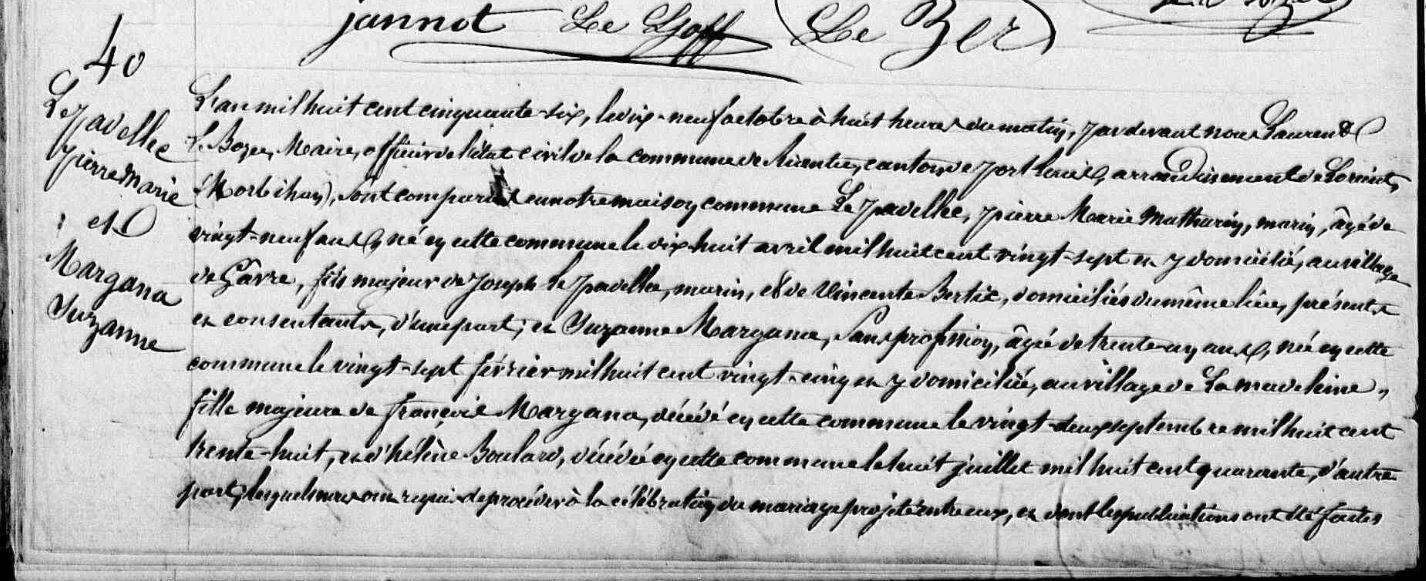 jannot Le Goff Le Ber
40
Le Javellec
Pierre Marie
et
Margana
Suzanne
L'an mil huit cent cinquante-six, le dix-neuf octobre à huit heures du matin, par devant nous Laurent
Maire, officier de l'état civil de la commune de Riantec, canton de Port Louis, arrondissement de Lorient,
(Morbihan), sont comparus en notre maison commune Le Javellec, Pierre Marie Mathurin, marin, âgé de
vingt-neuf ans, né en cette commune le dix-huit avril mil huit cent vingt-sept et y domicilié, au village
de Gâvre, fils majeur de Joseph le Javellec, marin, et de Vincente Bertic, domiciliés du même lieu, présents
et consentants, d'une part; et Suzanne Margana, sans profession, âgée de trente-un ans, née en cette
commune le vingt-sept février mil huit cent vingt-cinq et y domiciliée, au village de La madeleine,
fille majeure de françois Margana, décédé en cette commune le vingt-deux septembre mil huit cent
trente-huit, et d'hélène Boulard, décédée en cette commune le huit juillet mil huit cent quarante, d'autre
part; lesquels nous ont requis de procéder à la célébration du mariage projeté entre eux, et dont les publications ont été faites